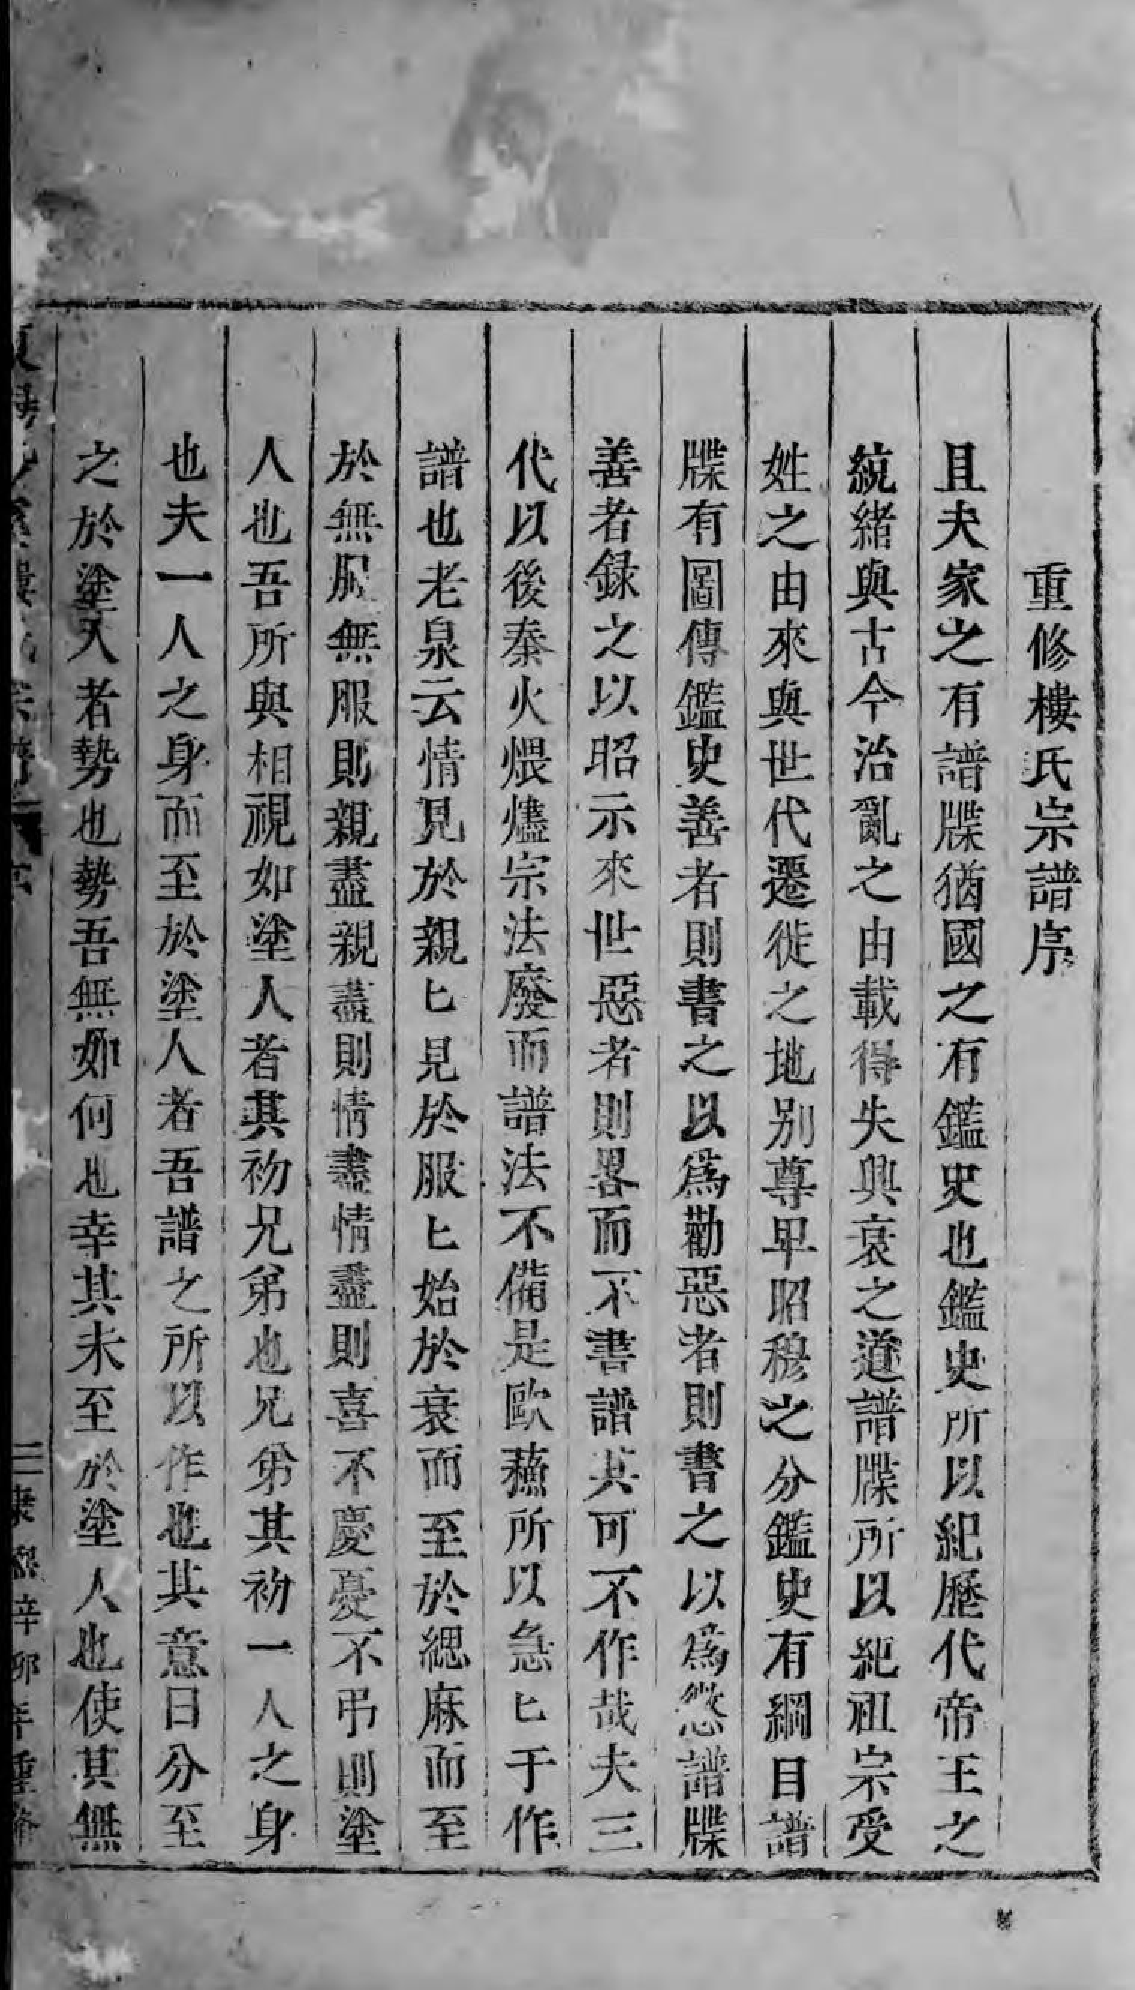 重修樓氏宗譜序
且夫家之有譜牒猶國之有鑑史也鑑史所以紀歷代帝王之
統緒與古今治亂之由載得失興衰之道譜牒所以紀祖宗受
姓之由來與世代遷徙之地別尊卑昭穆之分鑑史有綱目譜
牒有圖傳鑑史善者則書之以爲勸惡者則書之以爲懲譜牒
善者録之以昭示來世惡者則畧而不書譜其可不作哉夫三
代以後秦火煨燼宗法廢而譜法不備是歐蘓所以急匕于作
譜也老泉云情見於親匕見於服匕始於衰而至於緦麻而至
於無服無服則親盡親盡則情盡情盡則喜不慶憂不弔則塗
人也吾所與相視如塗人者其初兄弟也兄弟其初一人之身
也夫一人之身而至於塗人者吾譜之所以作也其意曰分至
之於塗人者勢也勢吾無如何也幸其未至於塗人也使其無
樓氏宗譜
康熙辛卯年重修